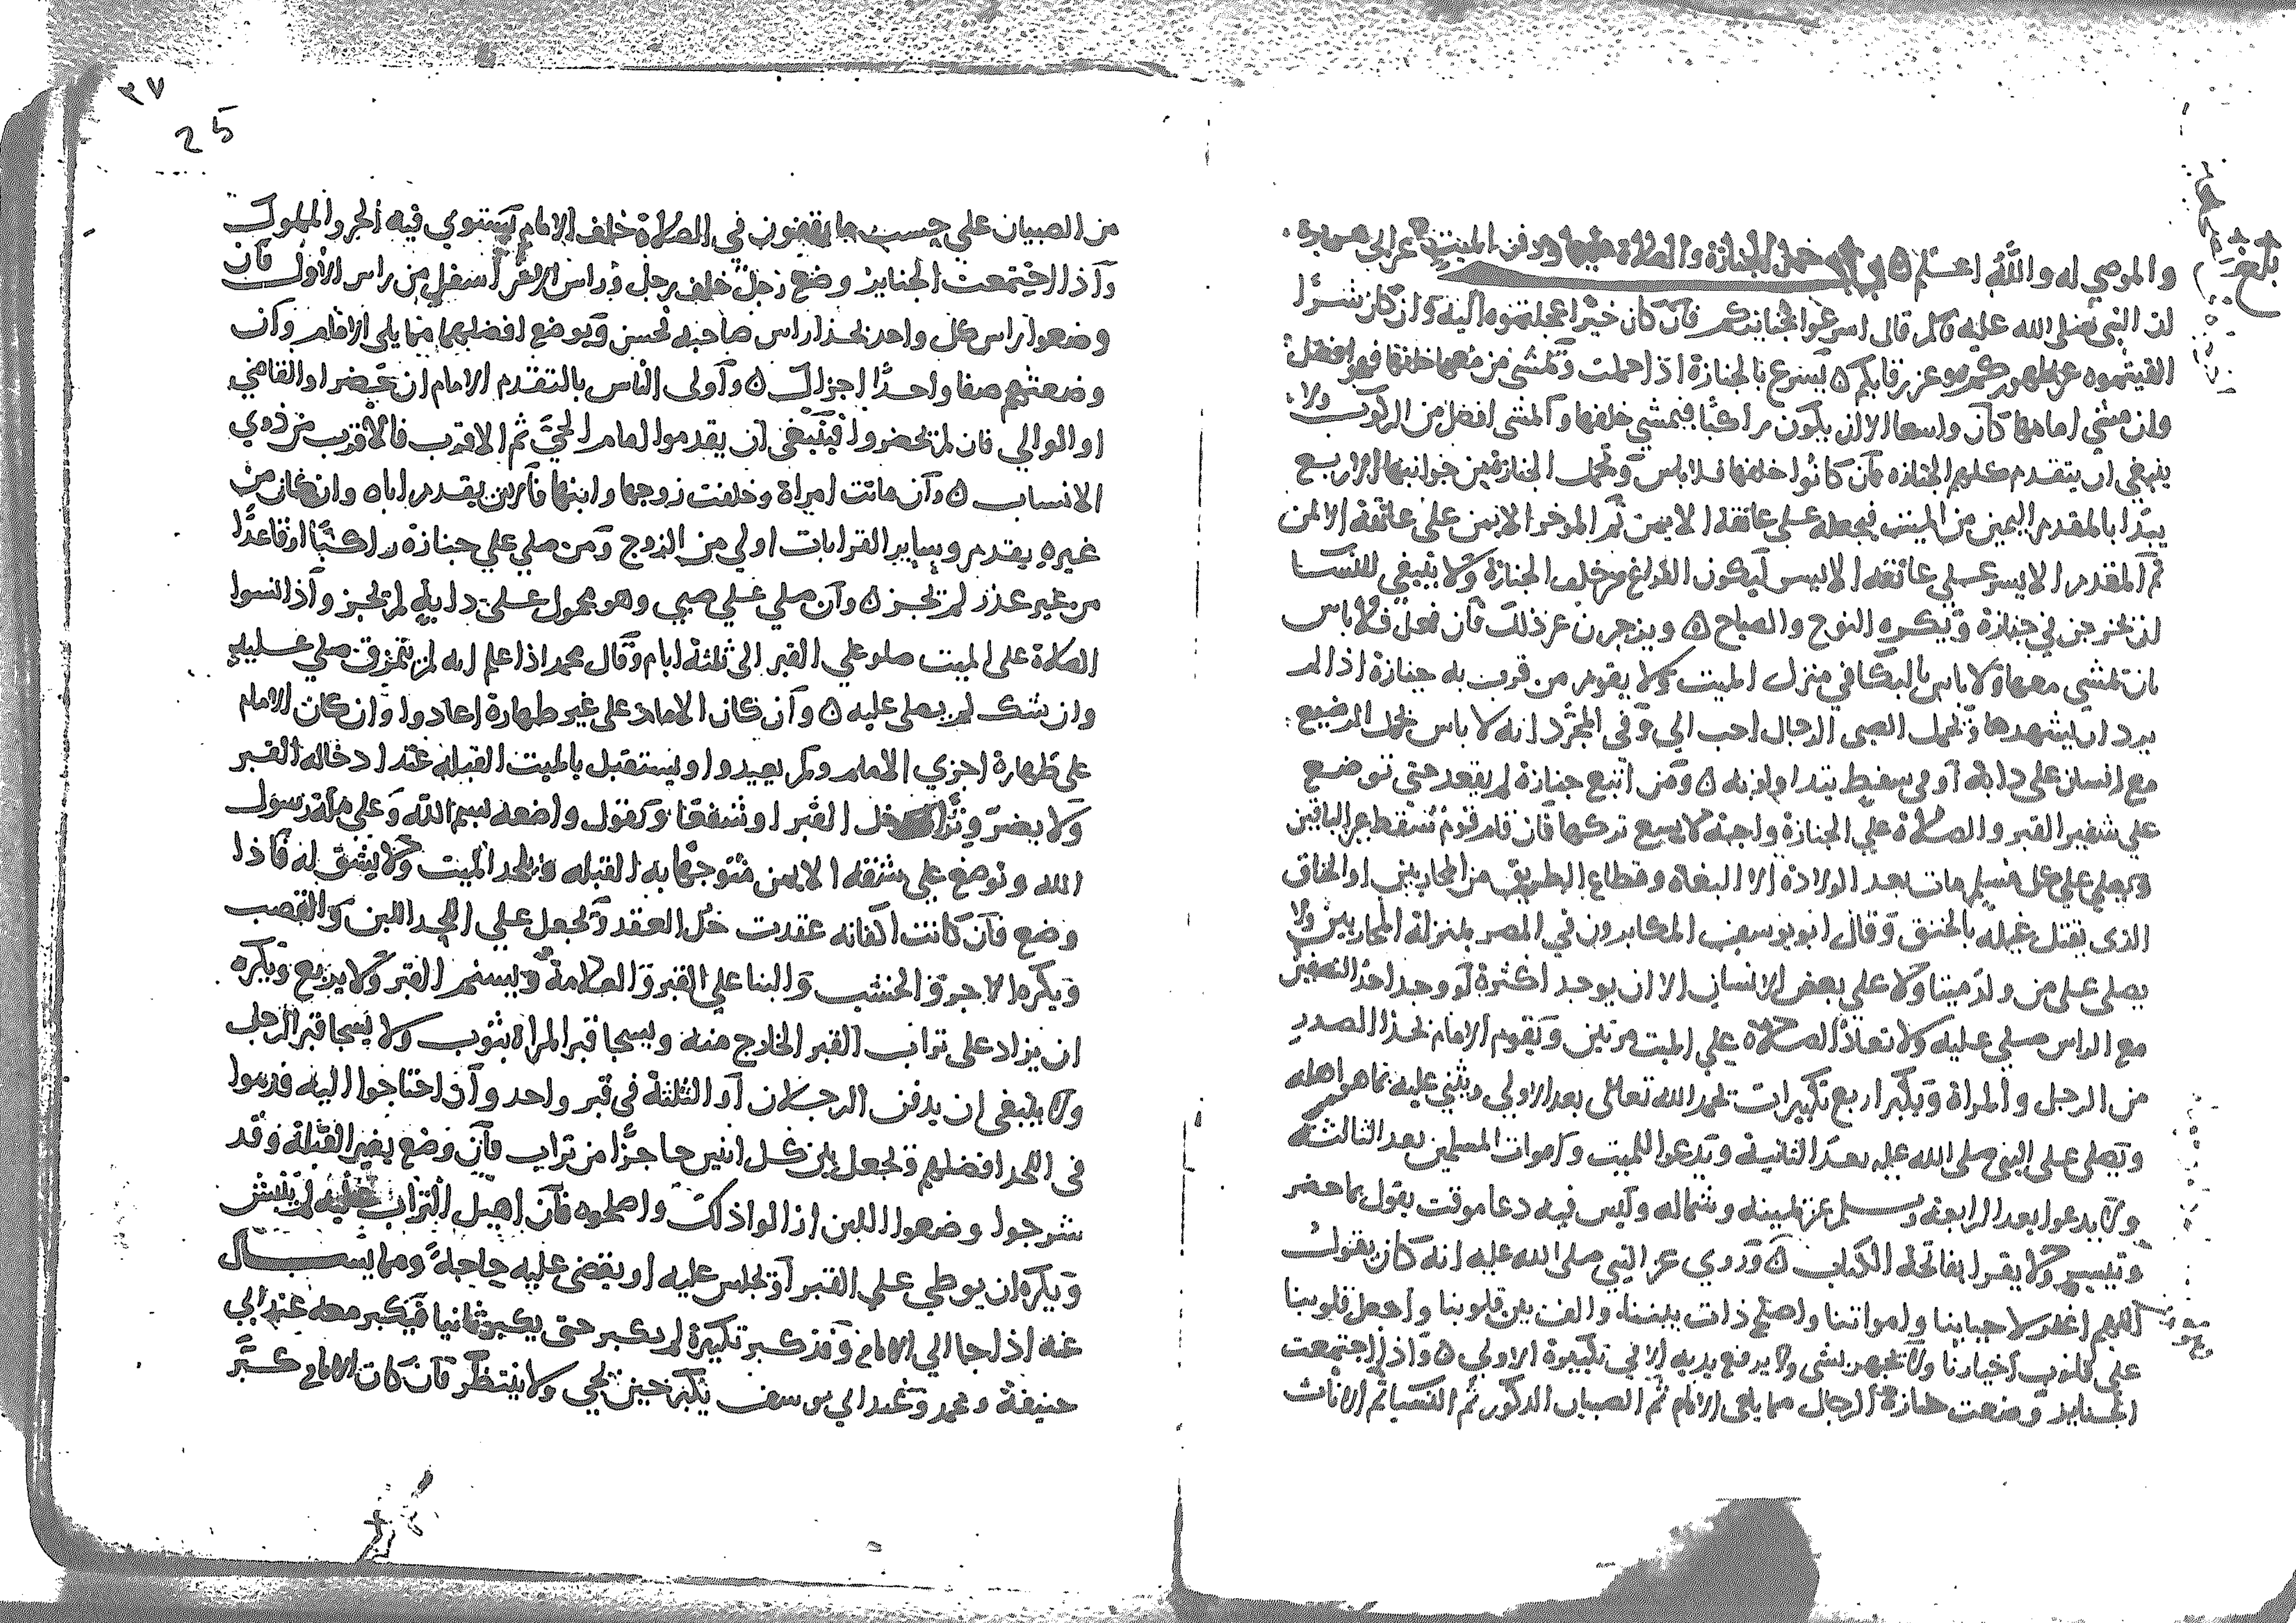 والموصي له والله اعلم ٥ باب حمل الجنازة والصلاة عليها ودفن الميت عن ابي هريرة
ان النبي صلى الله عليه وسلم قال اسرعوا بجنايزكم فان كان خيرا عجلتموه اليه وان كان شرا
القيتموه عن ظهوركم عن رقابكم ٥ يسرع بالجنازة اذا حملت وتمشى من معها خلفها فهو افضل
وان مشى امامها كان واسعا الا ان يكون راكبا فيمشي خلفها والمشى افضل من الركوب ولا
ينبغي ان يتقدم كلهم الجنازه فان كانوا خلفها فلا باس وتحمل الجنازة من جوانبها الاربع
يبدا بالمقدم اليمين من الميت فيجعله على عاتقه الايمن ثم الموخر الايمن على عاتقه الايمن
ثم المقدم الايسر على عاتقه الايسر ليكون الفراغ من خلف الجنازة ولا ينبغي للنسا
ان تخرجن في جنازة ويكره النوح والصياح ٥ ويزجرن عن ذلك فان فعل فلا باس
بان تمشي معها ولا باس بالبكا في منزل الميت ولا يقوم من قرب به جنازة اذا لم
يرد ان يشهدها وتحمل الصبى الرجال احب الي وفي المجرد انه لا باس بحمل الرضيع
مع انسان على دابة او في سفط يتداولونه ٥ ومن اتبع جنازة لم يقعد حتى توضع
على شفير القبر والصلاة على الجنازة واجبة لا يسع تركها فان قام قوم سقط عن الباقين
ويصلي على كل مسلم مات بعد الولادة الا البغاة وقطاع الطريق من المحاربين او الخناق
الذى يقتل غيلة بالخنق وقال ابو يوسف المكابرون في المصر بمنزلة المحاربين ولا
يصلى على من ولد ميتا ولا على بعض الانسان الا ان يوجد اكثره او وجد احد النصفين
مع الراس صلي عليه ولا تعاد الصلاة على الميت مرتين ويقوم الامام بحذا الصدر
من الرجل والمراة ويكبر اربع تكبيرات تحمد الله تعالى بعد الاولى ويثني عليه بما هو اهله
وتصلى على النبي صلى الله عليه بعد الثانية وتدعوا للميت ولاموات المسلمين بعد الثالثة
ولا يدعوا بعد الرابعة ويسلم عن يمينه وشماله وليس فيه دعا موقت يقول بما حضر
وتيسر ولا يقرا بفاتحة الكتاب ٥ وروي عن النبي صلى الله عليه انه كان يقول
اللهم اغفر لاحيائنا ولامواتنا واصلح ذات بيننا والف بين قلوبنا واجعل قلوبنا
على قلوب اخيارنا ولا تجهر بشي ولا يرفع يديه الا في تكبيرة الاولى ٥ واذا اجتمعت
الجنايز وضعت جنازة الرجال مما يلي الامام ثم الصبيان الذكور ثم النسا ثم الاناث
بلغ
٣٧
25
من الصبيان على حسب ما يقفون في الصلاة خلف الامام يستوي فيه الحر والمملوك
واذا اجتمعت الجنايز وضع رجل خلف رجل وراس الاخر اسفل من راس الاول فان
وضعوا راس كل واحد بحذا راس صاحبه فحسن ويوضع افضلهما مما يلي الامام وان
وضعتهم صفا واحدا اجزاك ٥ واولى الناس بالتقدم الامام ان حضر او القاضي
او الوالي فان لم يحضروا فينبغى ان يقدموا امام الحي ثم الاقرب فالاقرب من ذوي
الانساب ٥ وان ماتت امراة وخلفت زوجها وابنها فالابن يقدم اباه وان كان من
غيره يقدم وساير القرابات اولى من الزوج ومن صلي على جنازة راكبا او قاعدا
من غير عذر لم تجز ٥ وان صلي على صبي وهو محمول على دابة لم تجز واذا نسوا
الصلاة على الميت صلو على القبر الى ثلثة ايام وقال محمد اذا علم انه لم يتمزق صلي عليه
وان شك لم يصلى عليه ٥ وان كان الامام على غير طهارة اعادوا وان كان الامام
على طهارة اجزي الامام ولم يعيدوا ويستقبل بالميت القبلة عند ادخاله القبر
ولا يضر وترا دخل القبر او شفعا ويقول واضعه بسم الله وعلى ملة رسول
الله وتوضع على شقه الايمن متوجها به القبله ويلحد الميت ولا يشق له فاذا
وضع فان كانت اكفانه عقدت حل العقد وتجعل على اللحد اللبن والقصب
ويكره الاجر والخشب والبنا على القبر والعلامة ويسنم القبر ولا يربع ويكره
ان يزاد على تراب القبر الخارج منه ويسجا قبر المراة بثوب ولا يسجا قبر الرجل
ولا ينبغى ان يدفن الرجلان او الثلثة في قبر واحد وان احتاجوا اليه قدموا
في اللحد افضلهم وتجعل بين كل اثنين حاجزا من تراب فان وضع بغير القبلة وقد
شرجوا وضعوا اللبن ازالوا ذلك واصلحوه فان اهيل التراب عليه لم ينبش
ويكره ان يوطى على القبر او تجلس عليه او يقضى عليه حاجة ومما يسال
عنه اذا جا الى الامام وقد كبر تكبيرة لم يكبر حتى يكبر ثانيا فيكبر معه عند ابي
حنيفة ومحمد وعند ابي يوسف يكبر حين يجي ولا ينتظر فان كان الامام كبر